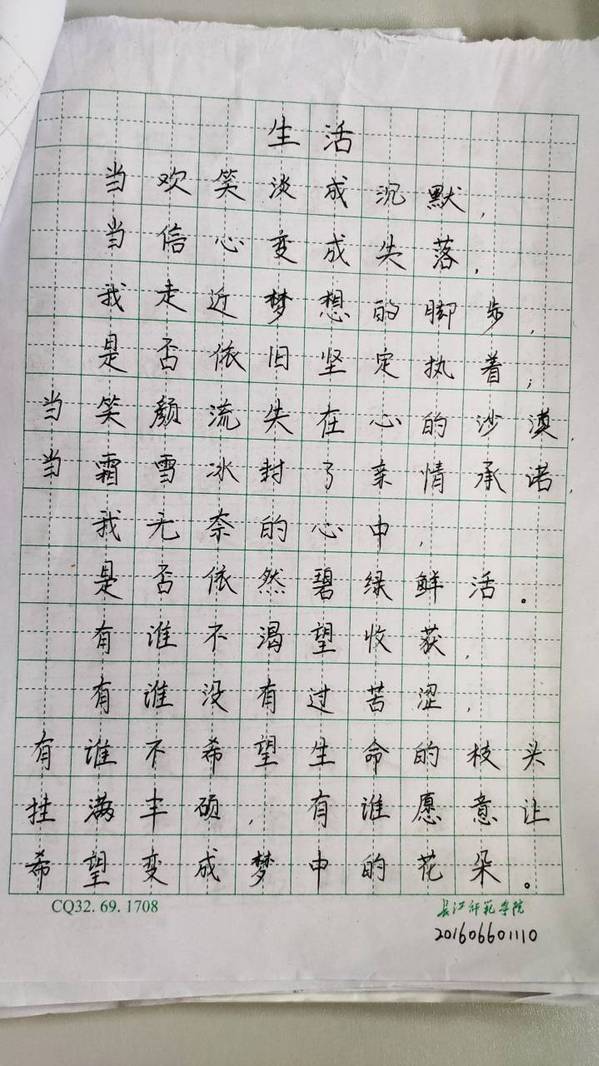 生活
当欢笑淡成沉默,
当信心变成失落,
我走近梦想的脚步,
是否依旧坚定执着;
当笑颜流失在心的沙漠,
当霜雪冰封了亲情承诺,
我无奈的心中,
是否依然碧绿鲜活。
有谁不渴望收获,
有谁没有过苦涩,
有谁不希望生命的枝头
挂满丰硕,有谁愿意让
希望变成梦中的花朵。
CQ32.69.1708
长江师范学院
201606601110